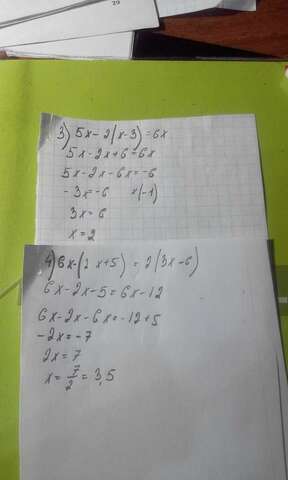 3) 5x-2(x-3)=6x
5x-2x+6=6x
5x-2x-6x=-6
-3x=-6 x(-1)
3x=6
x=2
4) 6x-(2x+5)=2(3x-6)
6x-2x-5=6x-12
6x-2x-6x=-12+5
-2x=-7
2x=7
x=7/2=3,5